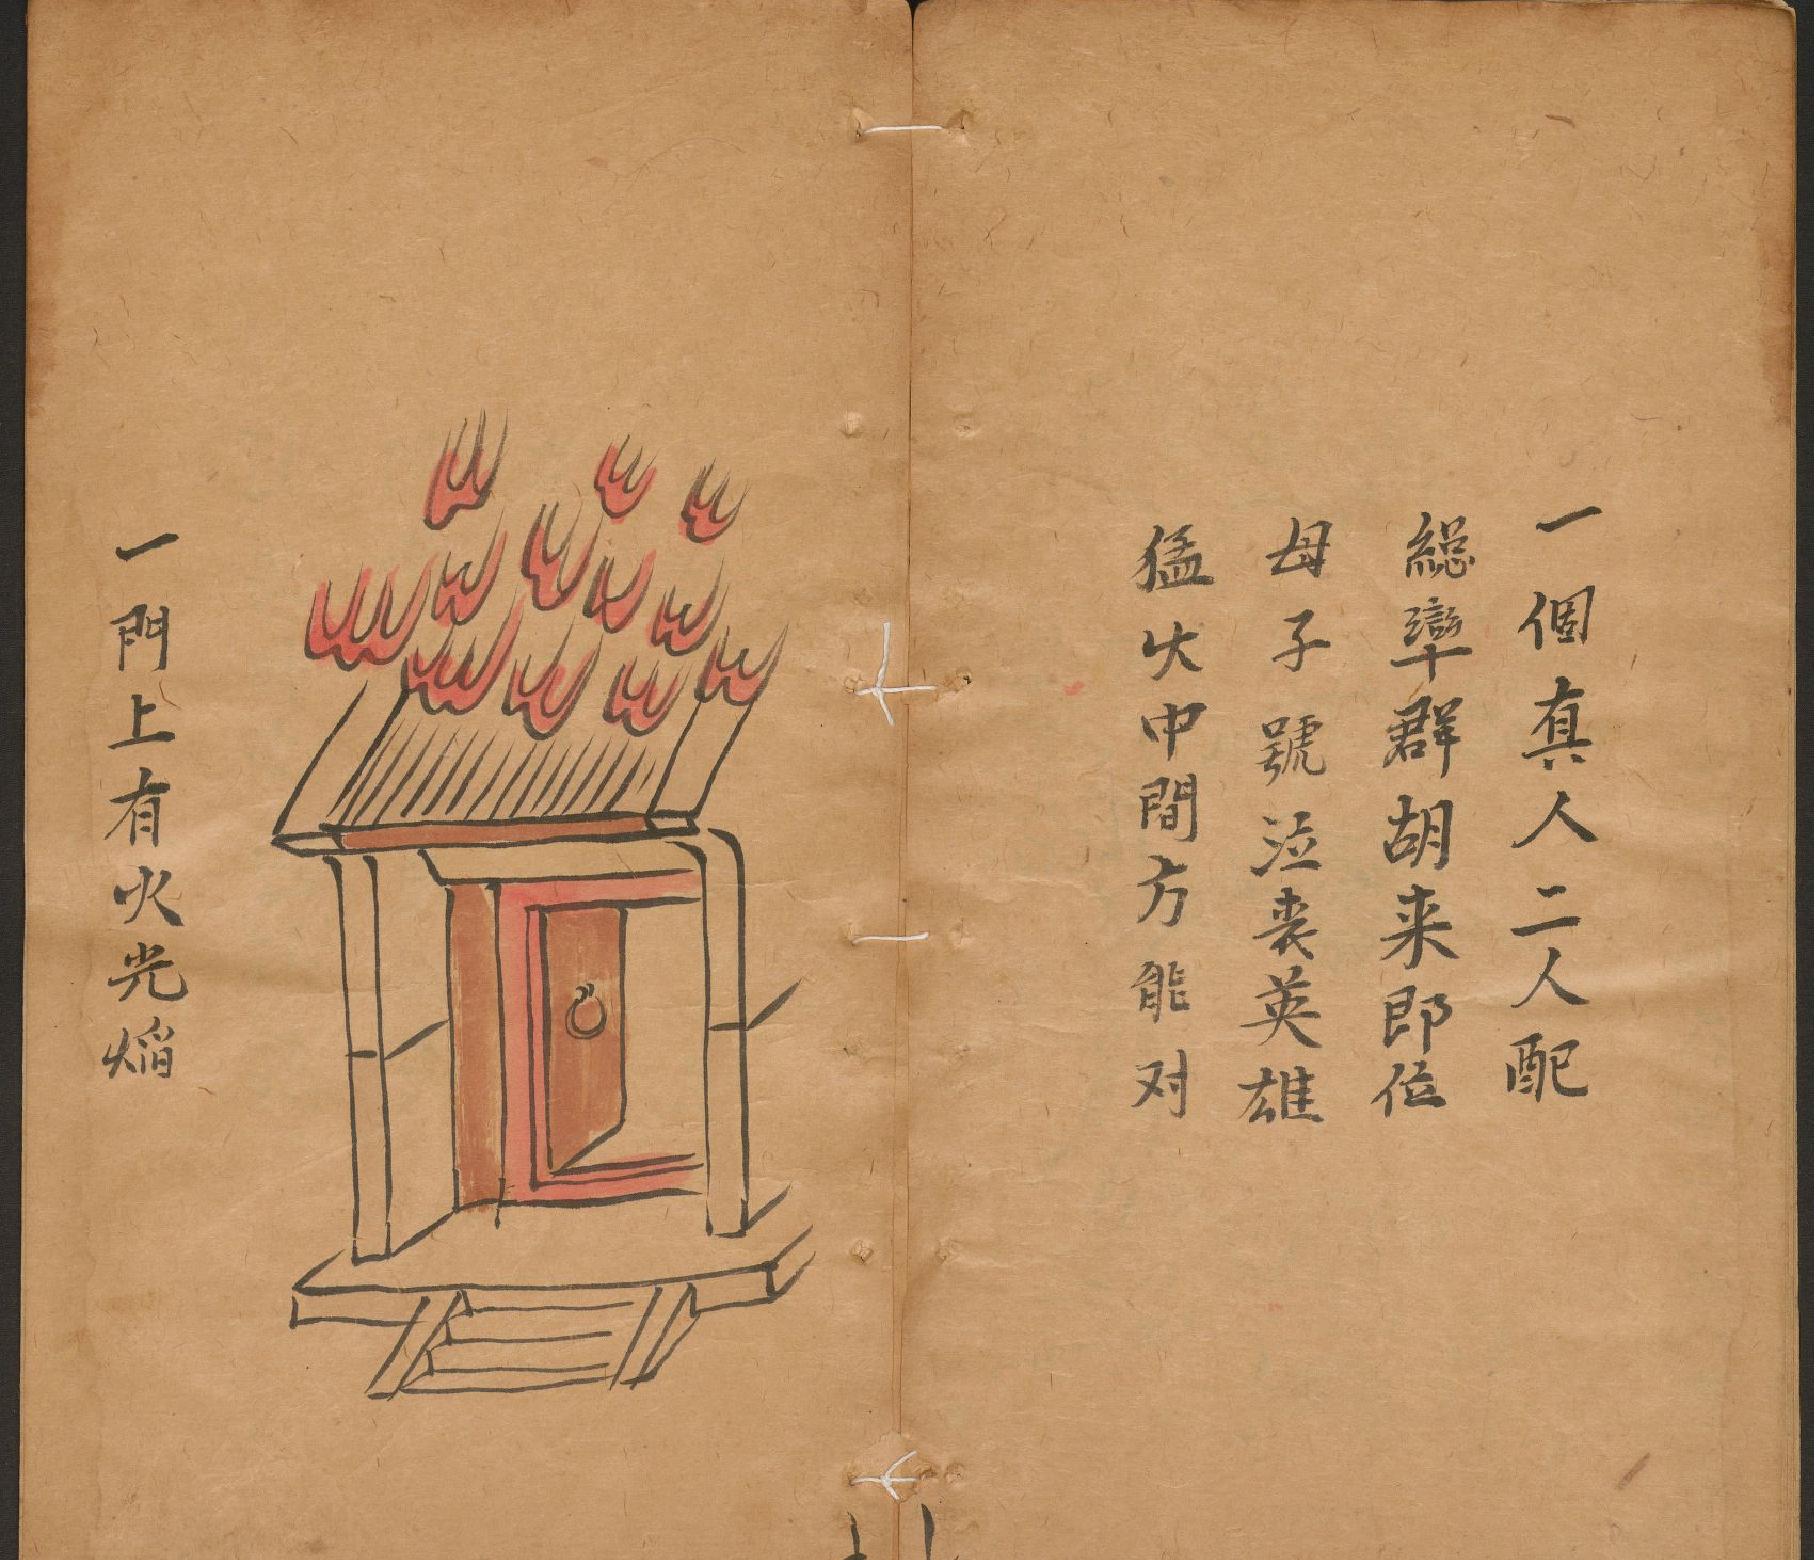 一個真人二人配
緫率群胡来即位
母子號泣喪英雄
猛火中間方能对
一門上有火光焔